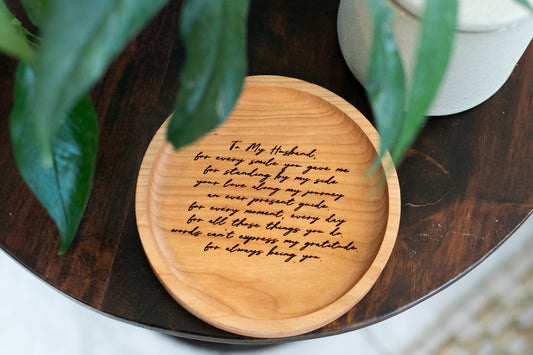 To My Husband,
for every smile you gave me
for standing by my side
your love along my journey
an ever present guide.
for every moment, every day
for all those things you do
words can't express my gratitude
for always being you.